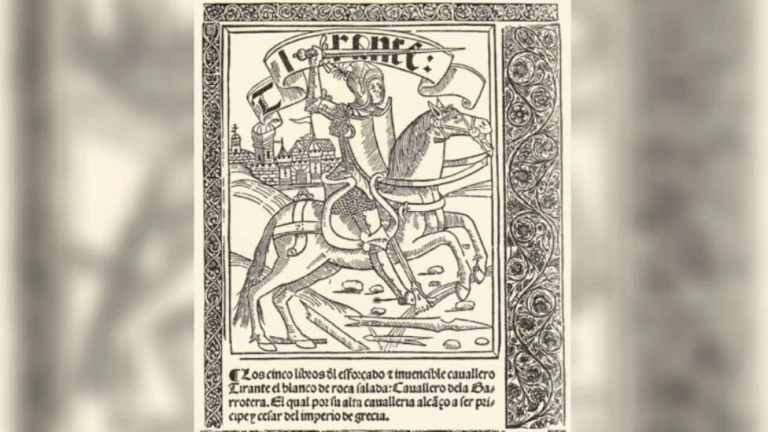 Tirante:
¶Los cinco libros ðl esforçado ⁊ invencible cavallero
Tirante el blanco de roca salada: Cavallero dela Ga-
rrotera. El qual por su alta cavalleria alcãço a ser prí-
cipe y cesar del imperio de grecia.